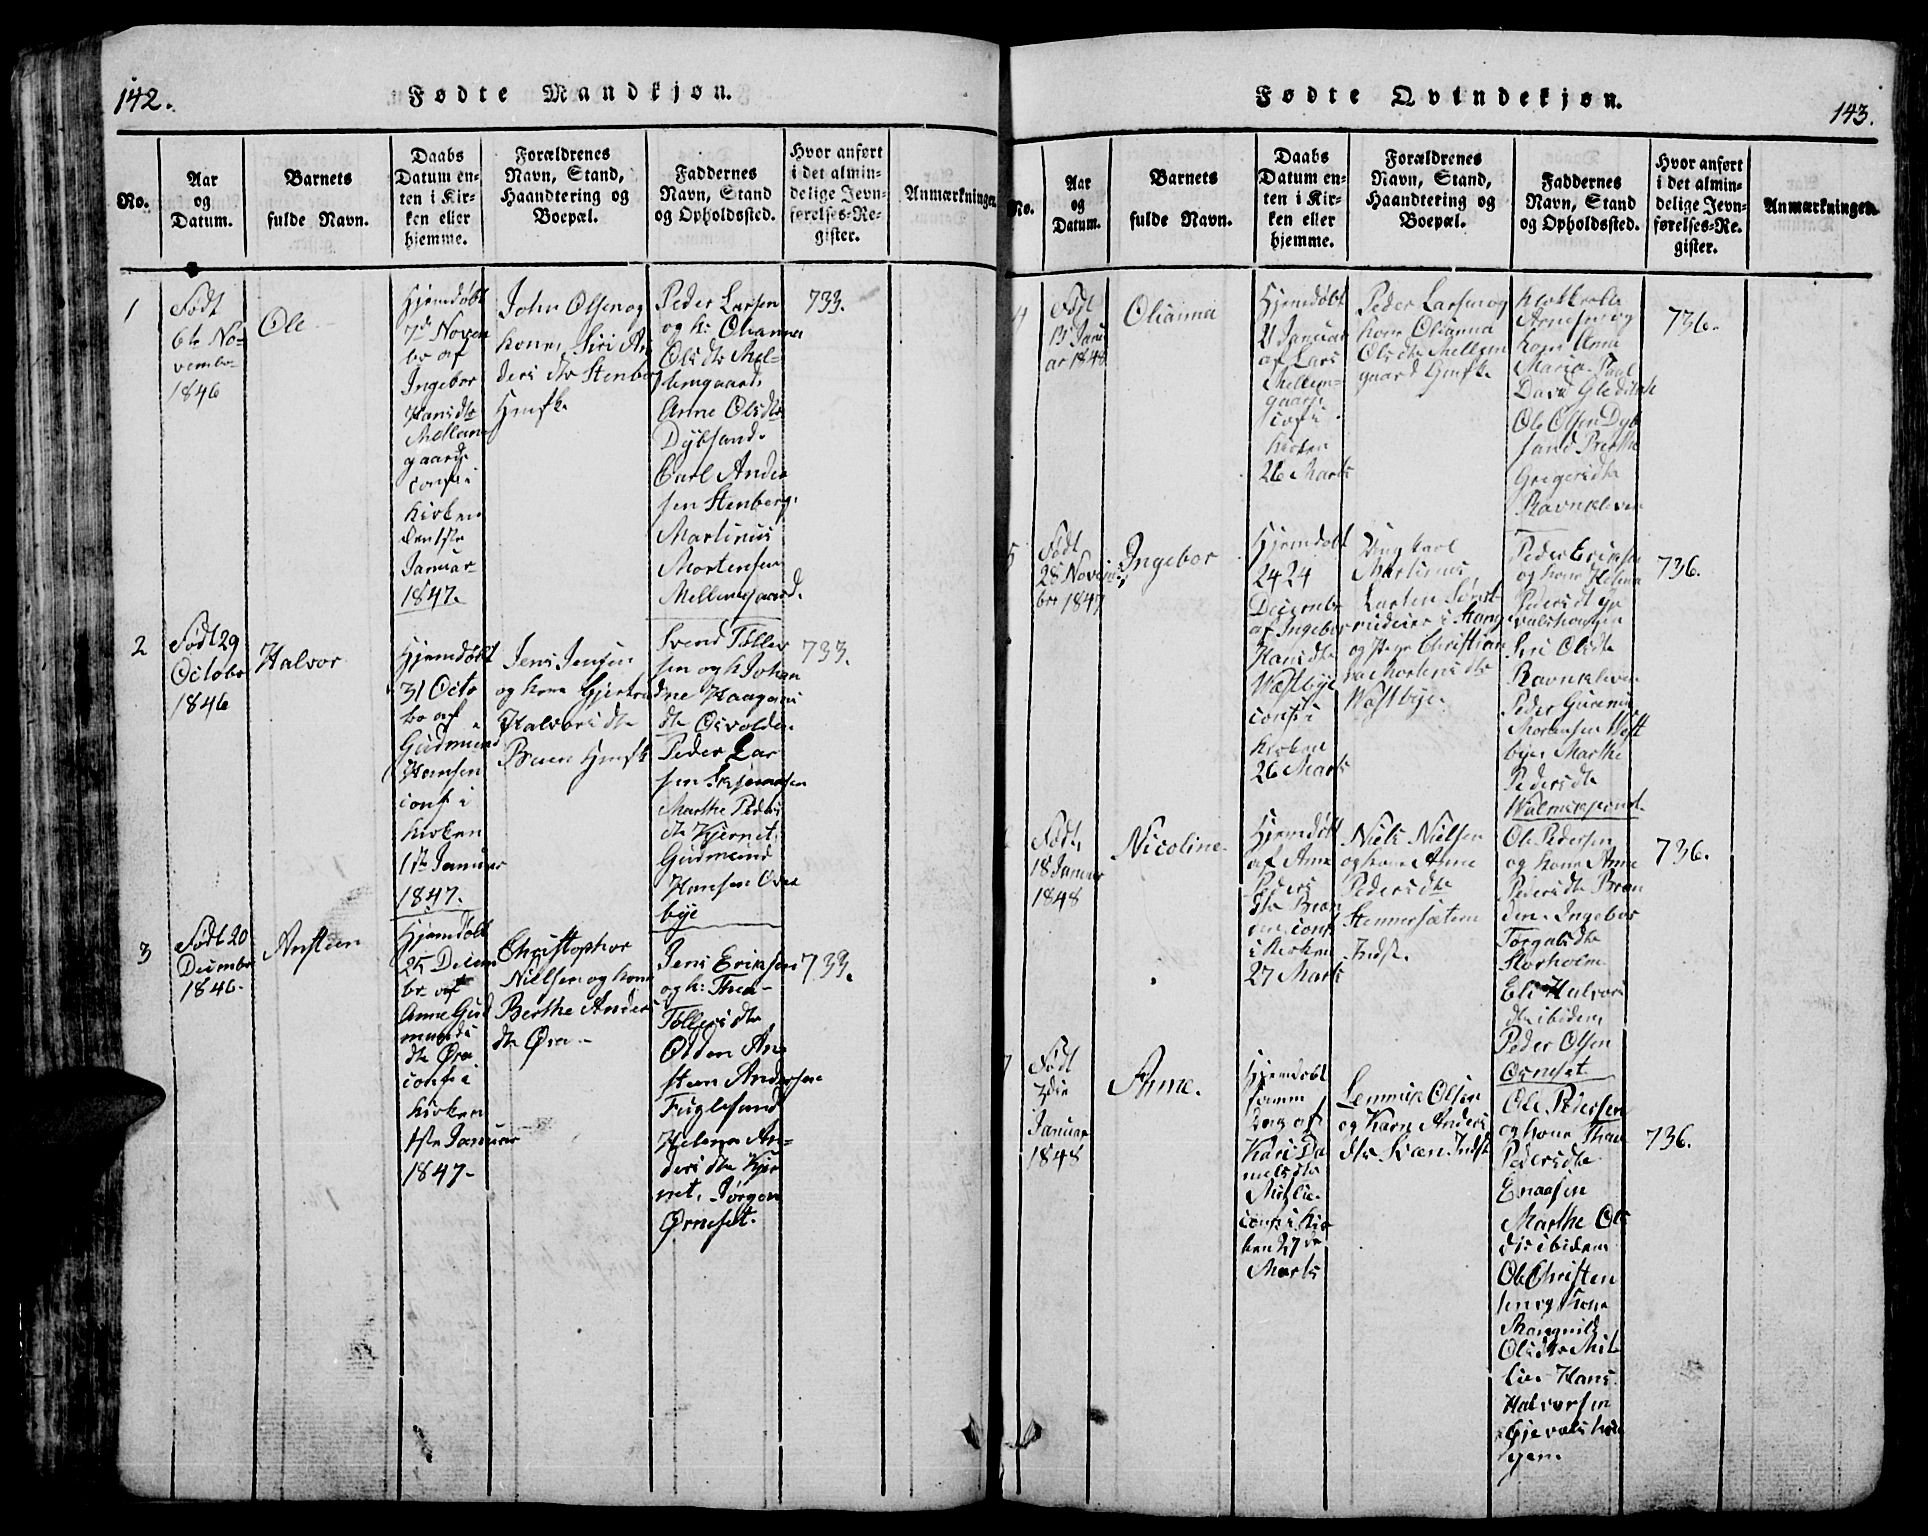 142.
Fødte Mandkjøn.
No.
Aar
og
Datum.
Barnets
fulde Navn.
Daabs
Datum en-
ten i Kir-
ken eller
hjemme.
Forældrenes
Navn, Stand,
Haandtering og
Boepæl.
Faddernes
Navn, Stand
og Opholdssted.
Hvor anført
i det almin-
delige Jevn-
førelses-Re-
gister.
Anmærkninger
1
Født
6te No-
vembr
1846
Ole
Hjemdøbt
7de Novem
br af
Ingebor
Hansdtr
Mellem
gaard
conf i
Kirken
den 1ste
Januar
1847.
John Olsen og
kone Siri An
ders dtr Stenberg
Hmfk.
Peder Larsen
og k: Olianna
Olsdtr Mel-
lemgaard,
Anne Olsdtr
Dybsand.
Carl Ander
sen Stenberg.
Martinus
Mortensen
Mellemgaard.
733.
2
Født 29
October
1846
Halvor
Hjemdøbt
31 Octo
br af
Gudmund
Hansen
conf i
Kirken
1ste Januar
1847.
Jens Jensen
og kone Gjertru
Halvors dtr
Bruen Hmfk
Svend Toller
sen og k Johan
dtr Osvolden
Peder Lar
sen
Marthe Peders
dtr Kjernet.
Gudmund
Hansen
bye
733.
3
Født 20
Decembr
1846.
Ansteen
Hjemdøbt
25 Decem
br af
Anne Gud
munds
dtr Øra
conf i
Kirken
1ste Januar
1847.
Christopher
Nielsen og kone
Berthe Anders
dtr Øra.
Jens Eriksen
og k: Thea
Tollers dtr
Odden An-
steen Andersen
Fuglesand
Helena An-
ders dtr Kjer
net, Jørgen
Ørneset.
733.
Fødte Qvindekjøn.
143.
No.
Aar
og
Datum.
Barnets
fulde Navn.
Daabs
Datum en-
ten i Kir-
ken eller
hjemme.
Forældrenes
Navn, Stand,
Haandtering og
Boepæl.
Faddernes
Navn, Stand
og Opholdssted.
Hvor anført
i det almin-
delige Jevn-
førelses-Re-
gister.
Anmærkninger.
4
Født
13 Janu
ar 1848
Olianna
Hjemdøbt
21 Januar
af Lars
Mellem-
gaard
conf i
Kirken
26 Marts
Peder Larsen og
kone Olianna
Olsdtr Mellem
gaard Hmfk
Arnesen og
kone Anne
Maria. Paul
Ole Olsen Dyb
sand Berthe
Gregersdtr
Ravnkleven
736.
5
Født
28 Novem
ber 1847
Ingebor
Hjemdøbt
24
Decembr
af Ingebor
Hansdtr
Westbye
conf i
Kirken
26 Marts
Ungkarl
Martinus
Larsen
og Pige Christian
Mortensdtr
Westbye.
Peder Eriksen
og kone Helena
Pedersdtr
Siri Olsdtr
Ravnkleven
Peder
Mortensen West
bye Marthe
Pedersdtr
736.
Født
18 Januar
1848
Nicoline
Hjemdøbt
af Anne
Peders
dtr Bran
den, conf
i Kirken
27 Marts
Niels Nielsen
og kone Anne
Pedersdtr
Stennersæteren
Indst.
Ole Pedersen
og kone Anne
Pedersdtr Bran
den. Ingebor
Torgalsdtr
Storholm
Eli Halvors
dtr ibidem,
Peder Olsen
Ørneset
736.
7
Født
7die
Januar
1848
Anne.
Hjemdøbt
samme
Dag af
Kari Da
nielsdtr
Milie.
conf i Kir
ken 27de
Marts
Lemmik Olsen
og Karn Anders
dtr Skæn Indst
Ole Pedersen
og kone Thea
Pedersdtr
Enaasen
Marthe Ols
dtr ibidem
Ole Christen
sen og kone
Rangnild
Olsdtr Mi
lie. Hans
Halvorsen
Gjevalshou
gen.
736.